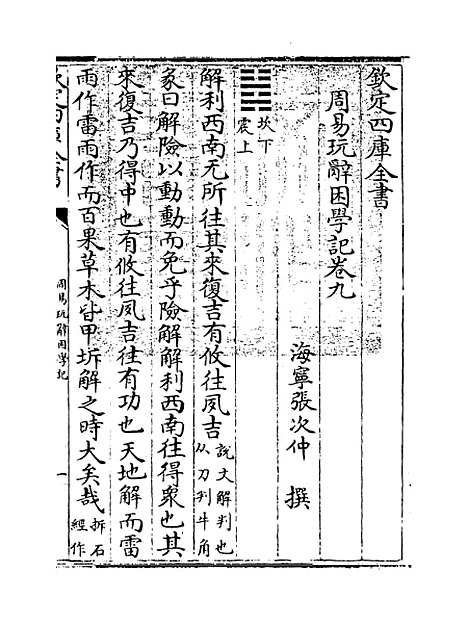 欽定四庫全書
周易玩辭困學記卷九
海寧張次仲 撰
坎下
震上
解利西南无所往其來復吉有攸往夙吉
說文解判也
从刀判牛角
彖曰解險以動動而免乎險解解利西南往得衆也其
來復吉乃得中也有攸往夙吉往有功也天地解而雷
雨作雷雨作而百果草木皆甲坼解之時大矣哉
拆石
經作
欽定四庫全書
周易玩辭困學記
一